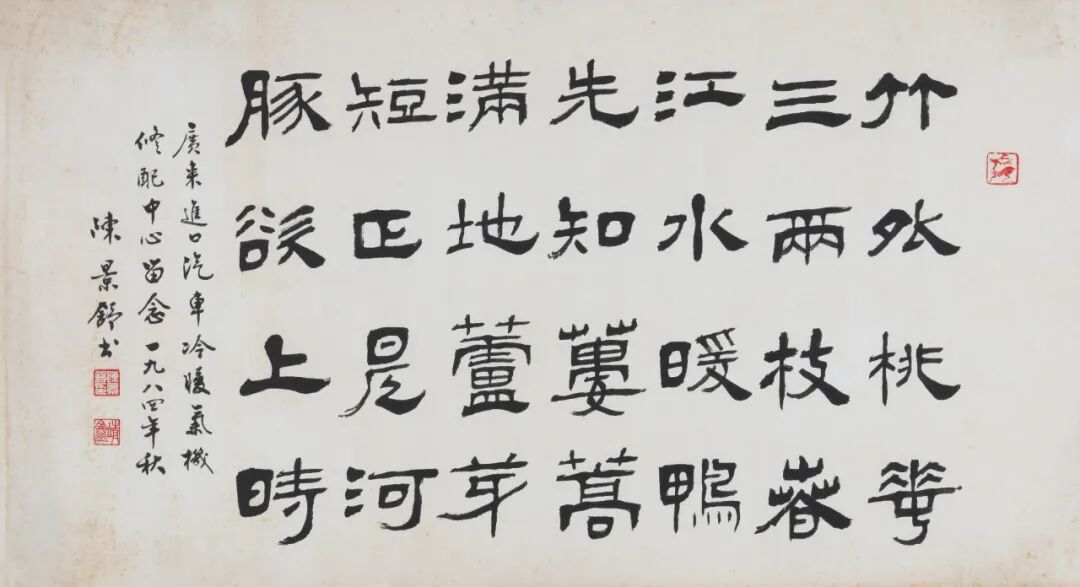 竹外桃華
三兩枝春
江水暖鴨
先知蔞蒿
滿地蘆芽
短正是河
豚欲上時
廣東進口汽車冷暖氣機
修配中心留念一九八四年秋
陳景舒书